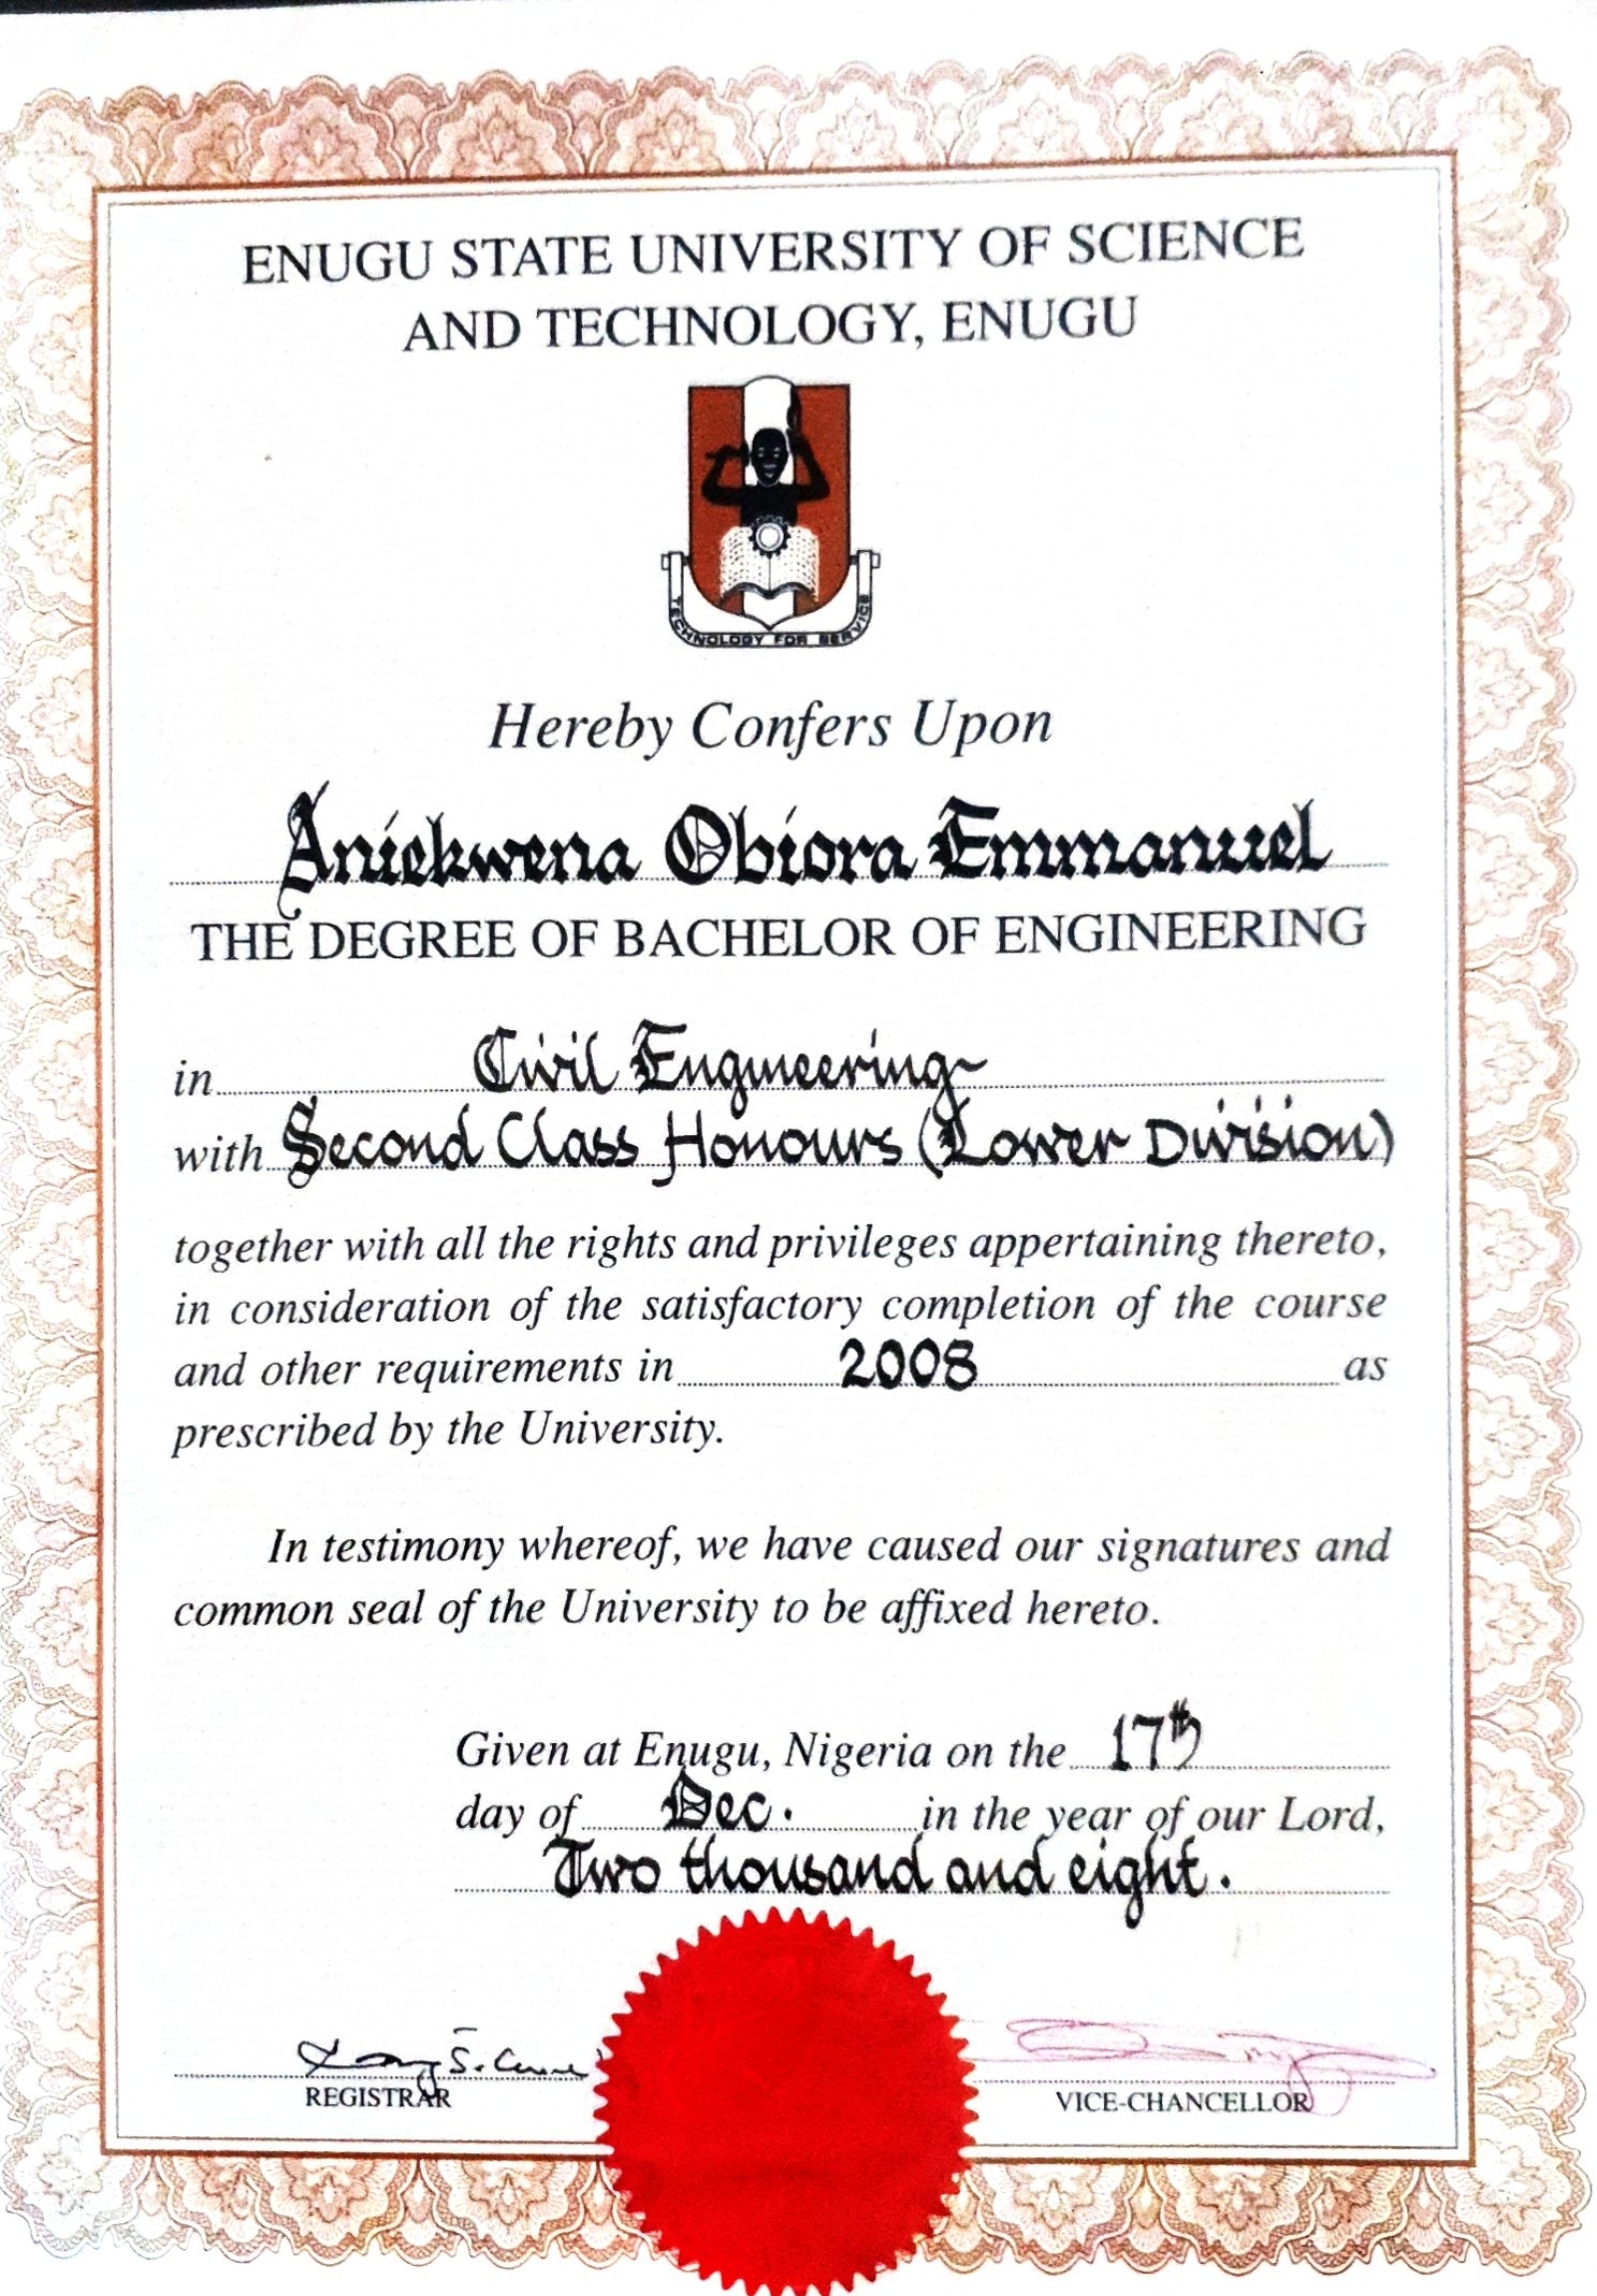 ENUGU STATE UNIVERSITY OF SCIENCE
AND TECHNOLOGY, ENUGU
TECHNOLOGY FOR SERVICE
Hereby Confers Upon
Aniekwena Obiora Emmanuel
THE DEGREE OF BACHELOR OF ENGINEERING
in Civil Engineering
with Second Class Honours (Lower Division)
together with all the rights and privileges appertaining thereto,
in consideration of the satisfactory completion of the course
and other requirements in 2008 as
prescribed by the University.
In testimony whereof, we have caused our signatures and
common seal of the University to be affixed hereto.
Given at Enugu, Nigeria on the 17th
day of Dec. in the year of our Lord,
Two thousand and eight.
REGISTRAR
VICE-CHANCELLOR